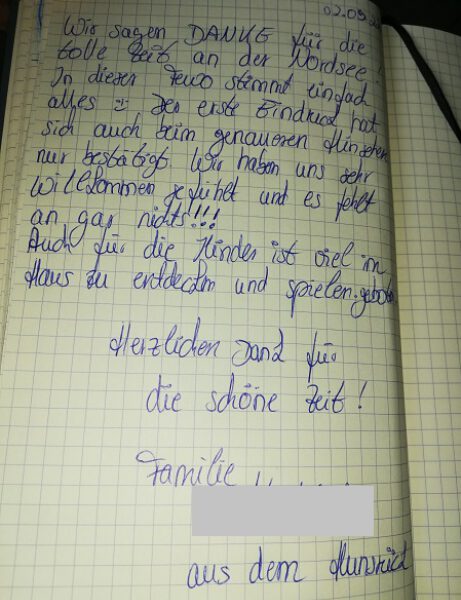 02.09.
Wir sagen DANKE für die
tolle Zeit an der Nordsee!
In dieser Fewo stimmt einfach
alles :-) Der erste Eindruck hat
sich auch beim genaueren Hinsehen
nur bestätigt. Wir haben uns sehr
Willkommen gefühlt und es fehlt
an gar nichts!!!
Auch für die Kinder ist viel im
Haus zu entdecken und spielen geboten.
Herzlichen Dank für
die schöne Zeit!
Familie
aus dem Hunsrück